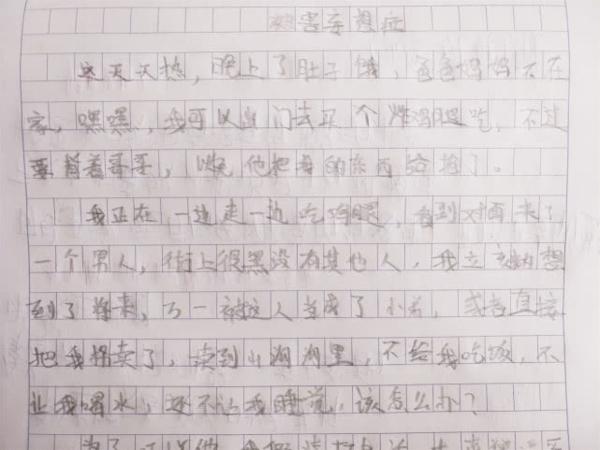 被害妄想症
这天天热，晚上了肚子饿，爸爸妈妈不在
家，嘿嘿，我可以出门去买个炸鸡腿吃，不过
要背着哥哥，以免他把我的东西给抢了。
我正在一边走一边吃鸡腿，看到对面来了
一个男人，街上很黑没有其他人，我立刻想
到了将来，万一被这人当成了小弟，或者直接
把我拐卖了，卖到山沟沟里，不给我吃饭，不
让我喝水，还不让我睡觉，该怎么办？
为了